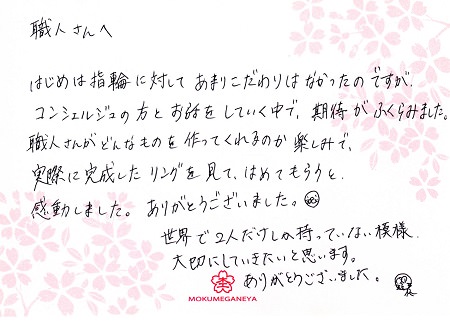 職人さんへ
はじめは指輪に対して あまりこだわりは なかったのですが、
コンシェルジュの方と お話をしていく中で、期待が ふくらみました。
職人さんがどんなものを作ってくれるのか 楽しみで、
実際に完成した リングを見て、はめてもらうと、
感動しました。ありがとうございました。
世界で2人だけしか持っていない模様、
大切にしていきたいと思います。
ありがとうございました。
MOKUMEGANEYA